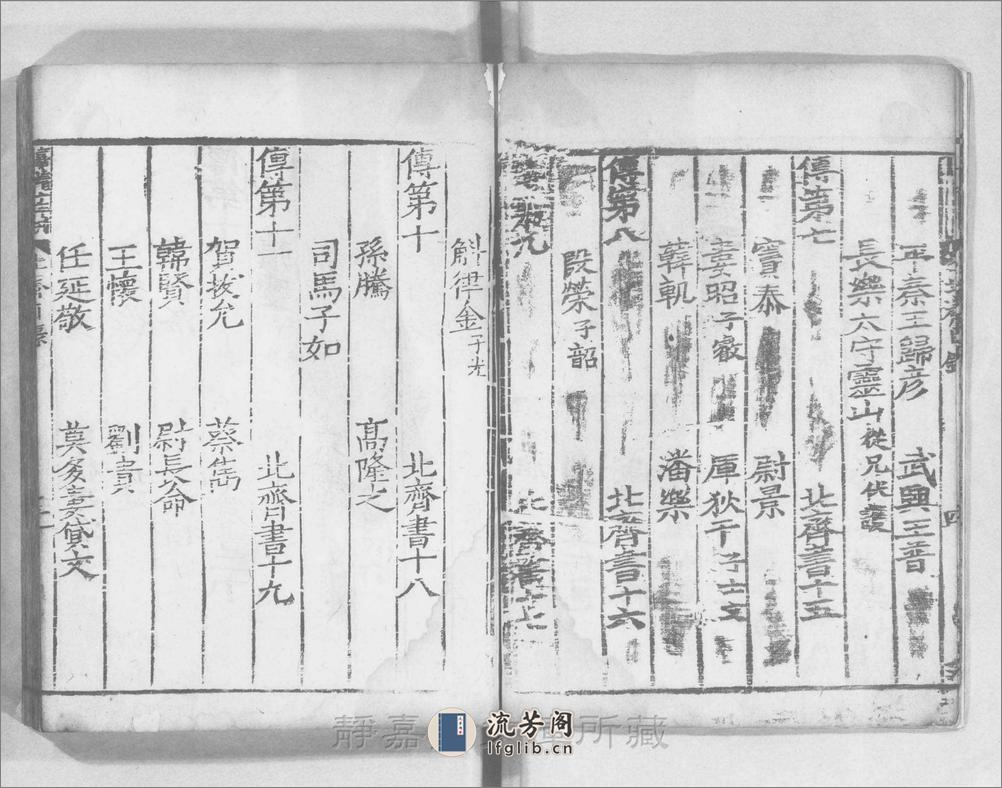 平秦王歸彦 武興王普
長樂太守靈山 從兄伏護
傳第七 北齊書十五
竇泰 尉景
婁昭子叡 厙狄干子士文
韓軌 潘樂
傳第八 北齊書十六
段榮子韶
傳第九 北齊書十七
斛律金子光
傳第十 北齊書十八
孫騰 髙隆之
司馬子如
傳第十一 北齊書十九
賀拔允 蔡儁
韓賢 尉長命
王懷 劉貴
任延敬 莫多婁貸文
靜嘉
所藏
流芳阁
lfglib.cn